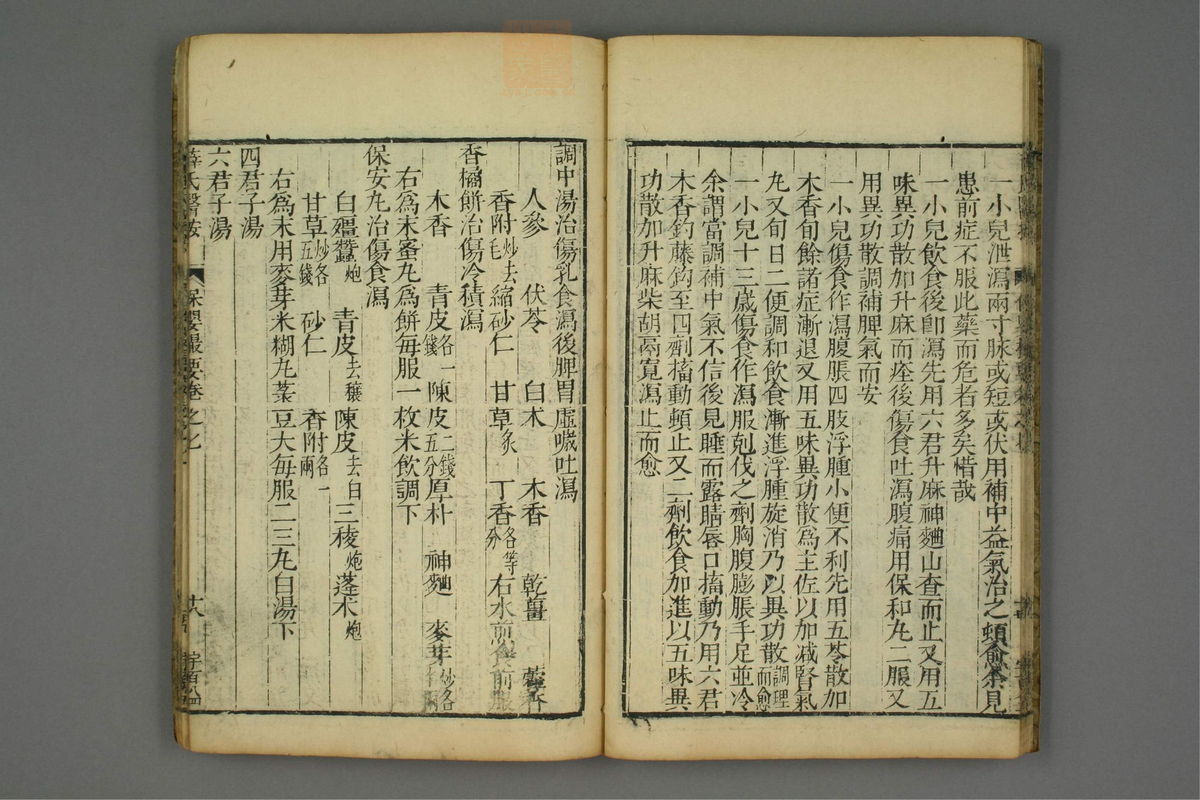 一小兒泄瀉兩寸脉或短或伏用補中益氣治之頓愈余見
患前症不服此藥而危者多矣惜哉
一小兒飲食後卽瀉先用六君升麻神麯山查而止又用五
味異功散加升麻而痊後傷食吐瀉腹痛用保和丸二服又
用異功散調補脾氣而安
一小兒傷食作瀉腹脹四肢浮腫小便不利先用五苓散加
木香旬餘諸症漸退又用五味異功散爲主佐以加减腎氣
丸又旬日二便調和飲食漸進浮腫旋消乃以異功散調理而愈
一小兒十三歲傷食作瀉服剋伐之劑胸腹膨脹手足並冷
余謂當調補中氣不信後見睡而露睛唇口搐動乃用六君
木香釣藤鈎至四劑搐動頓止又二劑飲食加進以五味異
功散加升麻柴胡鬲寬瀉止而愈
調中湯治傷乳食瀉後脾胃虛噦吐瀉
人參 伏苓 白术 木香 乾薑 藿香
香附炒去毛 縮砂仁 甘草炙 丁香各等分 右水煎食前服
香橘餅治傷冷積瀉
木香 青皮各一錢 陳皮二錢五分 厚朴 神麯 麥芽炒各
右爲末蜜丸爲餅每服一枚米飲調下
保安丸治傷食瀉
白殭蠶炮 青皮去穰 陳皮去白 三稜炮 蓬术炮
甘草炒各五錢 砂仁 香附各一兩
右爲末用麥芽米糊丸菉豆大每服二三丸白湯下
四君子湯
六君子湯
薛氏醫按 保嬰撮要卷之七 十八